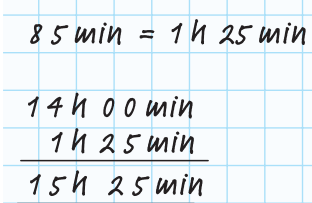 85 min = 1 h 25 min
14 h 00 min
1 h 25 min
15 h 25 min